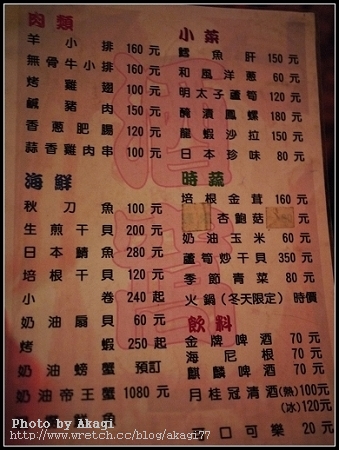 肉類
羊小排 160元
無骨牛小排 160元
烤雞翅 100元
鹹豬肉 150元
香蔥肥腸 120元
蒜香雞肉串 100元
海鮮
秋刀魚 100元
生煎干貝 200元
日本鯖魚 280元
培根干貝 120元
小卷 240起
奶油扇貝 60元
烤蝦 250起
奶油螃蟹 預訂
奶油帝王蟹 1080元
鮮魚
小菜
鱈魚肝 150元
和風洋蔥 60元
明太子蘆筍 120元
醃漬鳳螺 180元
龍蝦沙拉 150元
日本珍味 80元
時蔬
培根金茸 160元
杏鮑菇 元
奶油玉米 60元
蘆筍炒干貝 350元
季節青菜 80元
火鍋(冬天限定) 時價
飲料
金牌啤酒 70元
海尼根 70元
麒麟啤酒 70元
月桂冠清酒(熱)100元
(冰)120元
可口可樂 20元
Photo by Akagi
http://www.wretch.cc/blog/akagi77